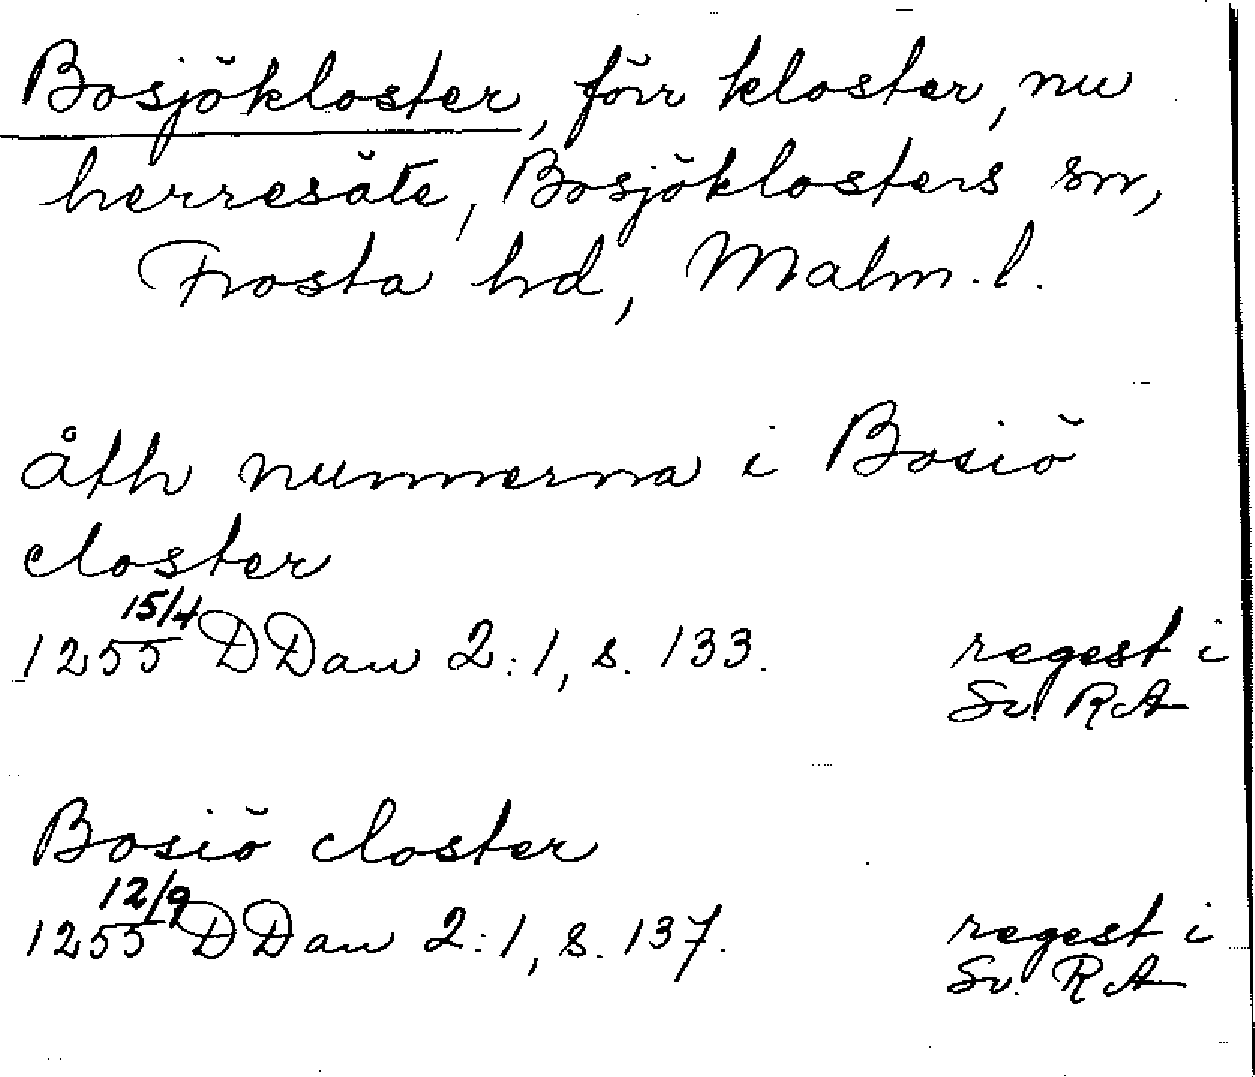 Bosjökloster, förr kloster, nu
herresäte, Bosjöklosters sn,
Frosta hd, Malm.l.
åth nunnerna i Bosiö
closter
1255 15/4 DDan 2:1, s. 133. regest i
Sv. RA
Bosiö closter
1255 12/9 DDan 2:1, s. 137. regest i
Sv. RA